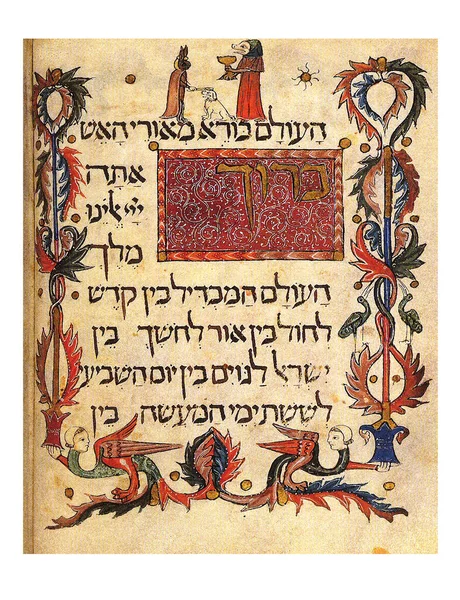 העולם בורא מאורי האש
ברוך אתה
ייי אלהינו
מלך
העולם המבדיל בין קדש
לחול בין אור לחשך בין
ישראל לגוים בין יום השביעי
לששת ימי המעשה בין